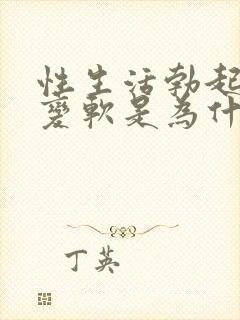 性生活勃起
变軟是為什
丁英